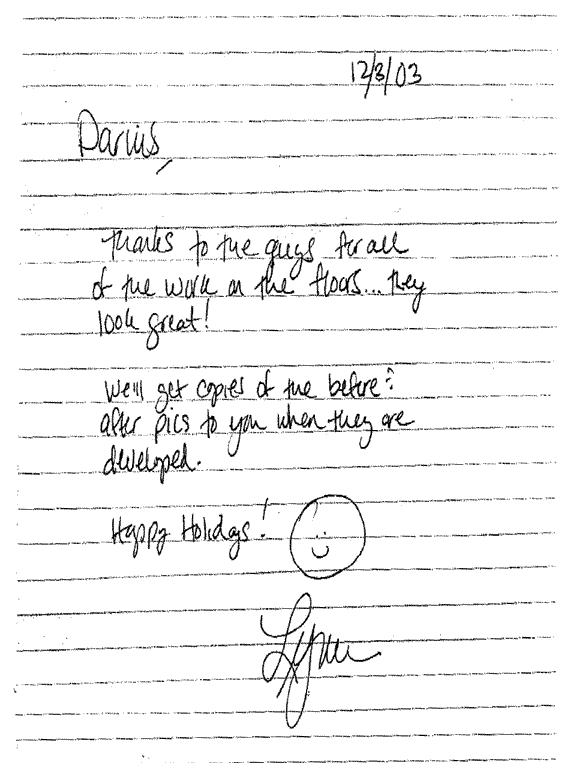 12/3/03
Darius,
Thanks to the guys for all
of the work on the floors... they
look great!
We'll get copies of the before &
after pics to you when they are
developed.
Happy Holidays!
Lynn